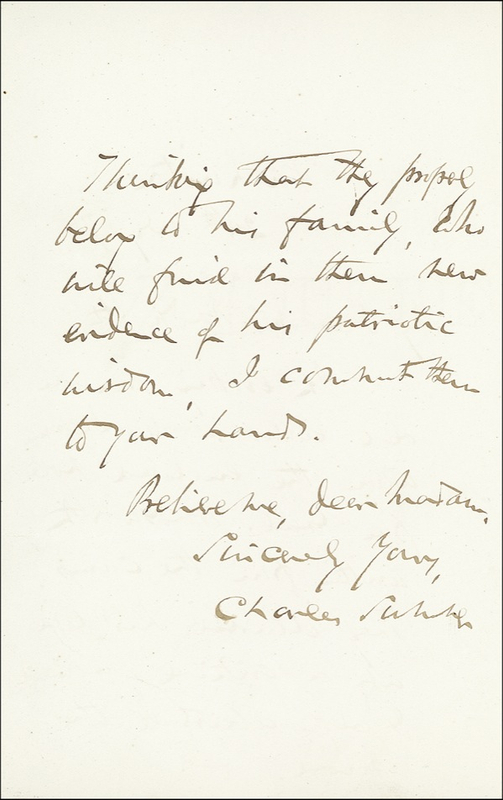 Thinking that they properly
belong to his family, who
will find in them new
evidence of his patriotic
wisdom, I commit them
to your hands.
Believe me, dear Madam,
Sincerely Yours,
Charles Sumner